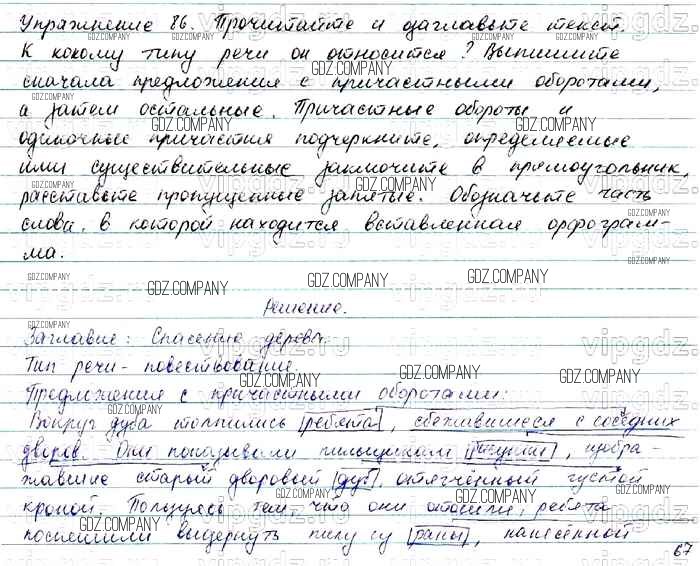 Упражнение 86. Прочитайте и озаглавьте текст.
К какому типу речи он относится? Выпишите
сначала предложения с причастными оборотами,
а затем остальные. Причастные обороты и
одиночные причастия подчеркните, определяемые
ими существительные заключите в прямоугольник,
расставьте пропущенные запятые. Обозначьте часть
слова, в которой находится вставленная орфограм-
ма.
Решение.
Заглавие: Спасение дерева.
Тип речи - повествование.
Предложения с причастными оборотами:
Вокруг дуба толпились ребята, сбежавшиеся с соседних
дворов. Они показывали пильщикам рисунки, изобра-
жавшие старый дворовый дуб, отягчённый густой
кроной. Пользуясь тем, что они отошли, ребята
поспешили выдернуть пилу из раны, нанесённой
67
GDZ.COMPANY
vipgdz.ru